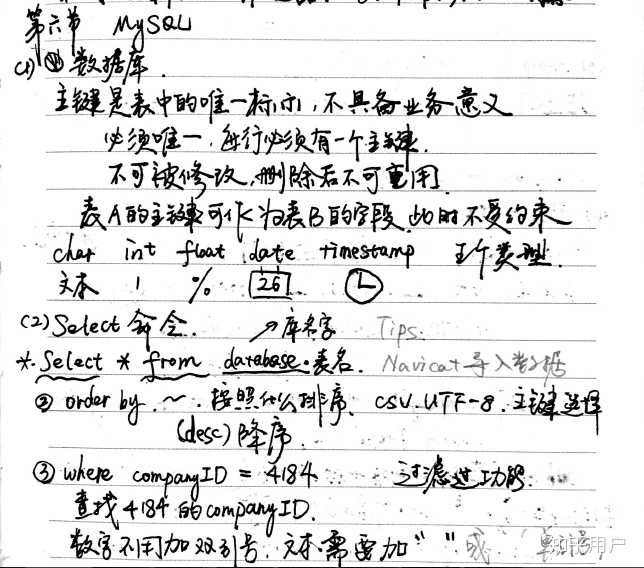 第六节 MySQL
(1) 数据库.
主键是表中的唯一标示, 不具备业务意义
必须唯一, 每行必须有一个主键.
不可被修改, 删除后不可重用.
表A的主键可作为表B的字段, 此时不受约束
char int float date timestamp 五个类型.
文本 1 % 26
(2) Select 命令. → 库名字 Tips.
*. Select * from database.表名. Navicat导入数据
② order by ~ 按照什么排序. CSV. UTF-8. 主键选择
(desc) 降序.
③ where companyID = 4184 过滤过功能
查找4184的companyID.
数字不用加双引号, 文本需要加 " " 或 单引号
知乎用户